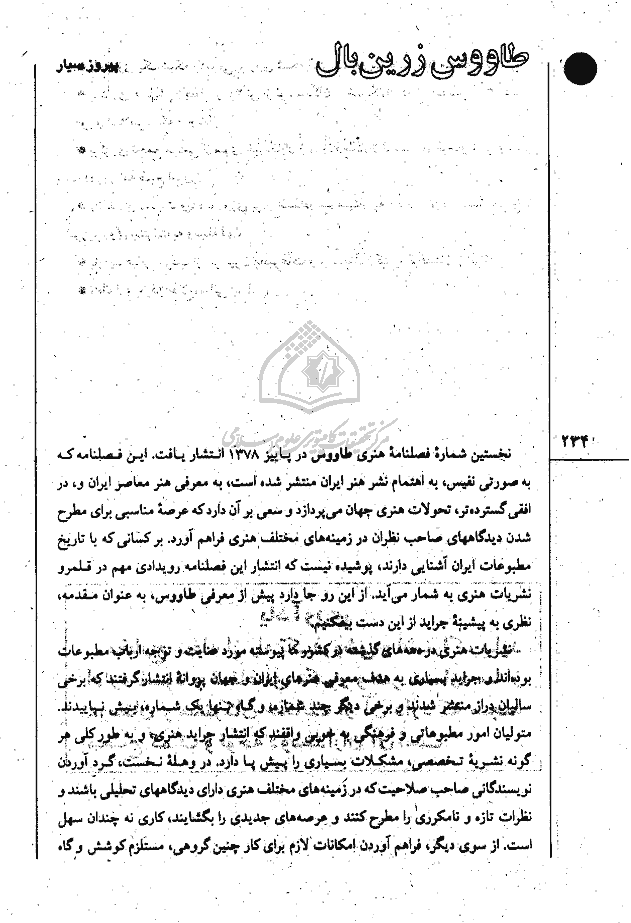 طاووس زرین‌بال
پیروز سیار
مرکز تحقیقات کامپیوتری علوم اسلامی
۲۳۴
نخستین شمارهٔ فصلنامهٔ هنری طاووس در پاییز ۱۳۷۸ انتشار یافت. این فصلنامه که
به صورتی نفیس، به اهتمام نشر هنر ایران منتشر شده است، به معرفی هنر معاصر ایران و، در
افقی گسترده‌تر، تحولات هنری جهان می‌پردازد و سعی بر آن دارد که عرصهٔ مناسبی برای مطرح
شدن دیدگاههای صاحب نظران در زمینه‌های مختلف هنری فراهم آورد. بر کسانی که با تاریخ
مطبوعات ایران آشنایی دارند، پوشیده نیست که انتشار این فصلنامه رویدادی مهم در قلمرو
نشریات هنری به شمار می‌آید. از این رو جا دارد پیش از معرفی طاووس، به عنوان مقدمه،
نظری به پیشینهٔ جراید از این دست بیفکنیم.
نشریات هنری در دهه‌های گذشته در کشور ما پیوسته مورد عنایت و توجه ارباب مطبوعات
بوده‌اند و جراید بسیاری به هدف معرفی هنرهای ایران و جهان پروانهٔ انتشار گرفتند که برخی
سالیان دراز منتشر شدند و برخی دیگر چند شماره، و گاه تنها یک شماره، بیش نپاییدند.
متولیان امور مطبوعاتی و فرهنگی به خوبی واقفند که انتشار جراید هنری، و به طور کلی هر
گونه نشریهٔ تخصصی، مشکلات بسیاری را پیش پا دارد. در وهلهٔ نخست، گرد آوردن
نویسندگانی صاحب صلاحیت که در زمینه‌های مختلف هنری دارای دیدگاههای تحلیلی باشند و
نظرات تازه و نامکرری را مطرح کنند و عرصه‌های جدیدی را بگشایند، کاری نه چندان سهل
است. از سوی دیگر، فراهم آوردن امکانات لازم برای کار چنین گروهی، مستلزم کوشش و گاه